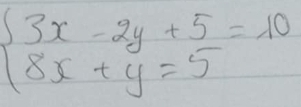 3x - 2y + 5 = 10
8x + y = 5